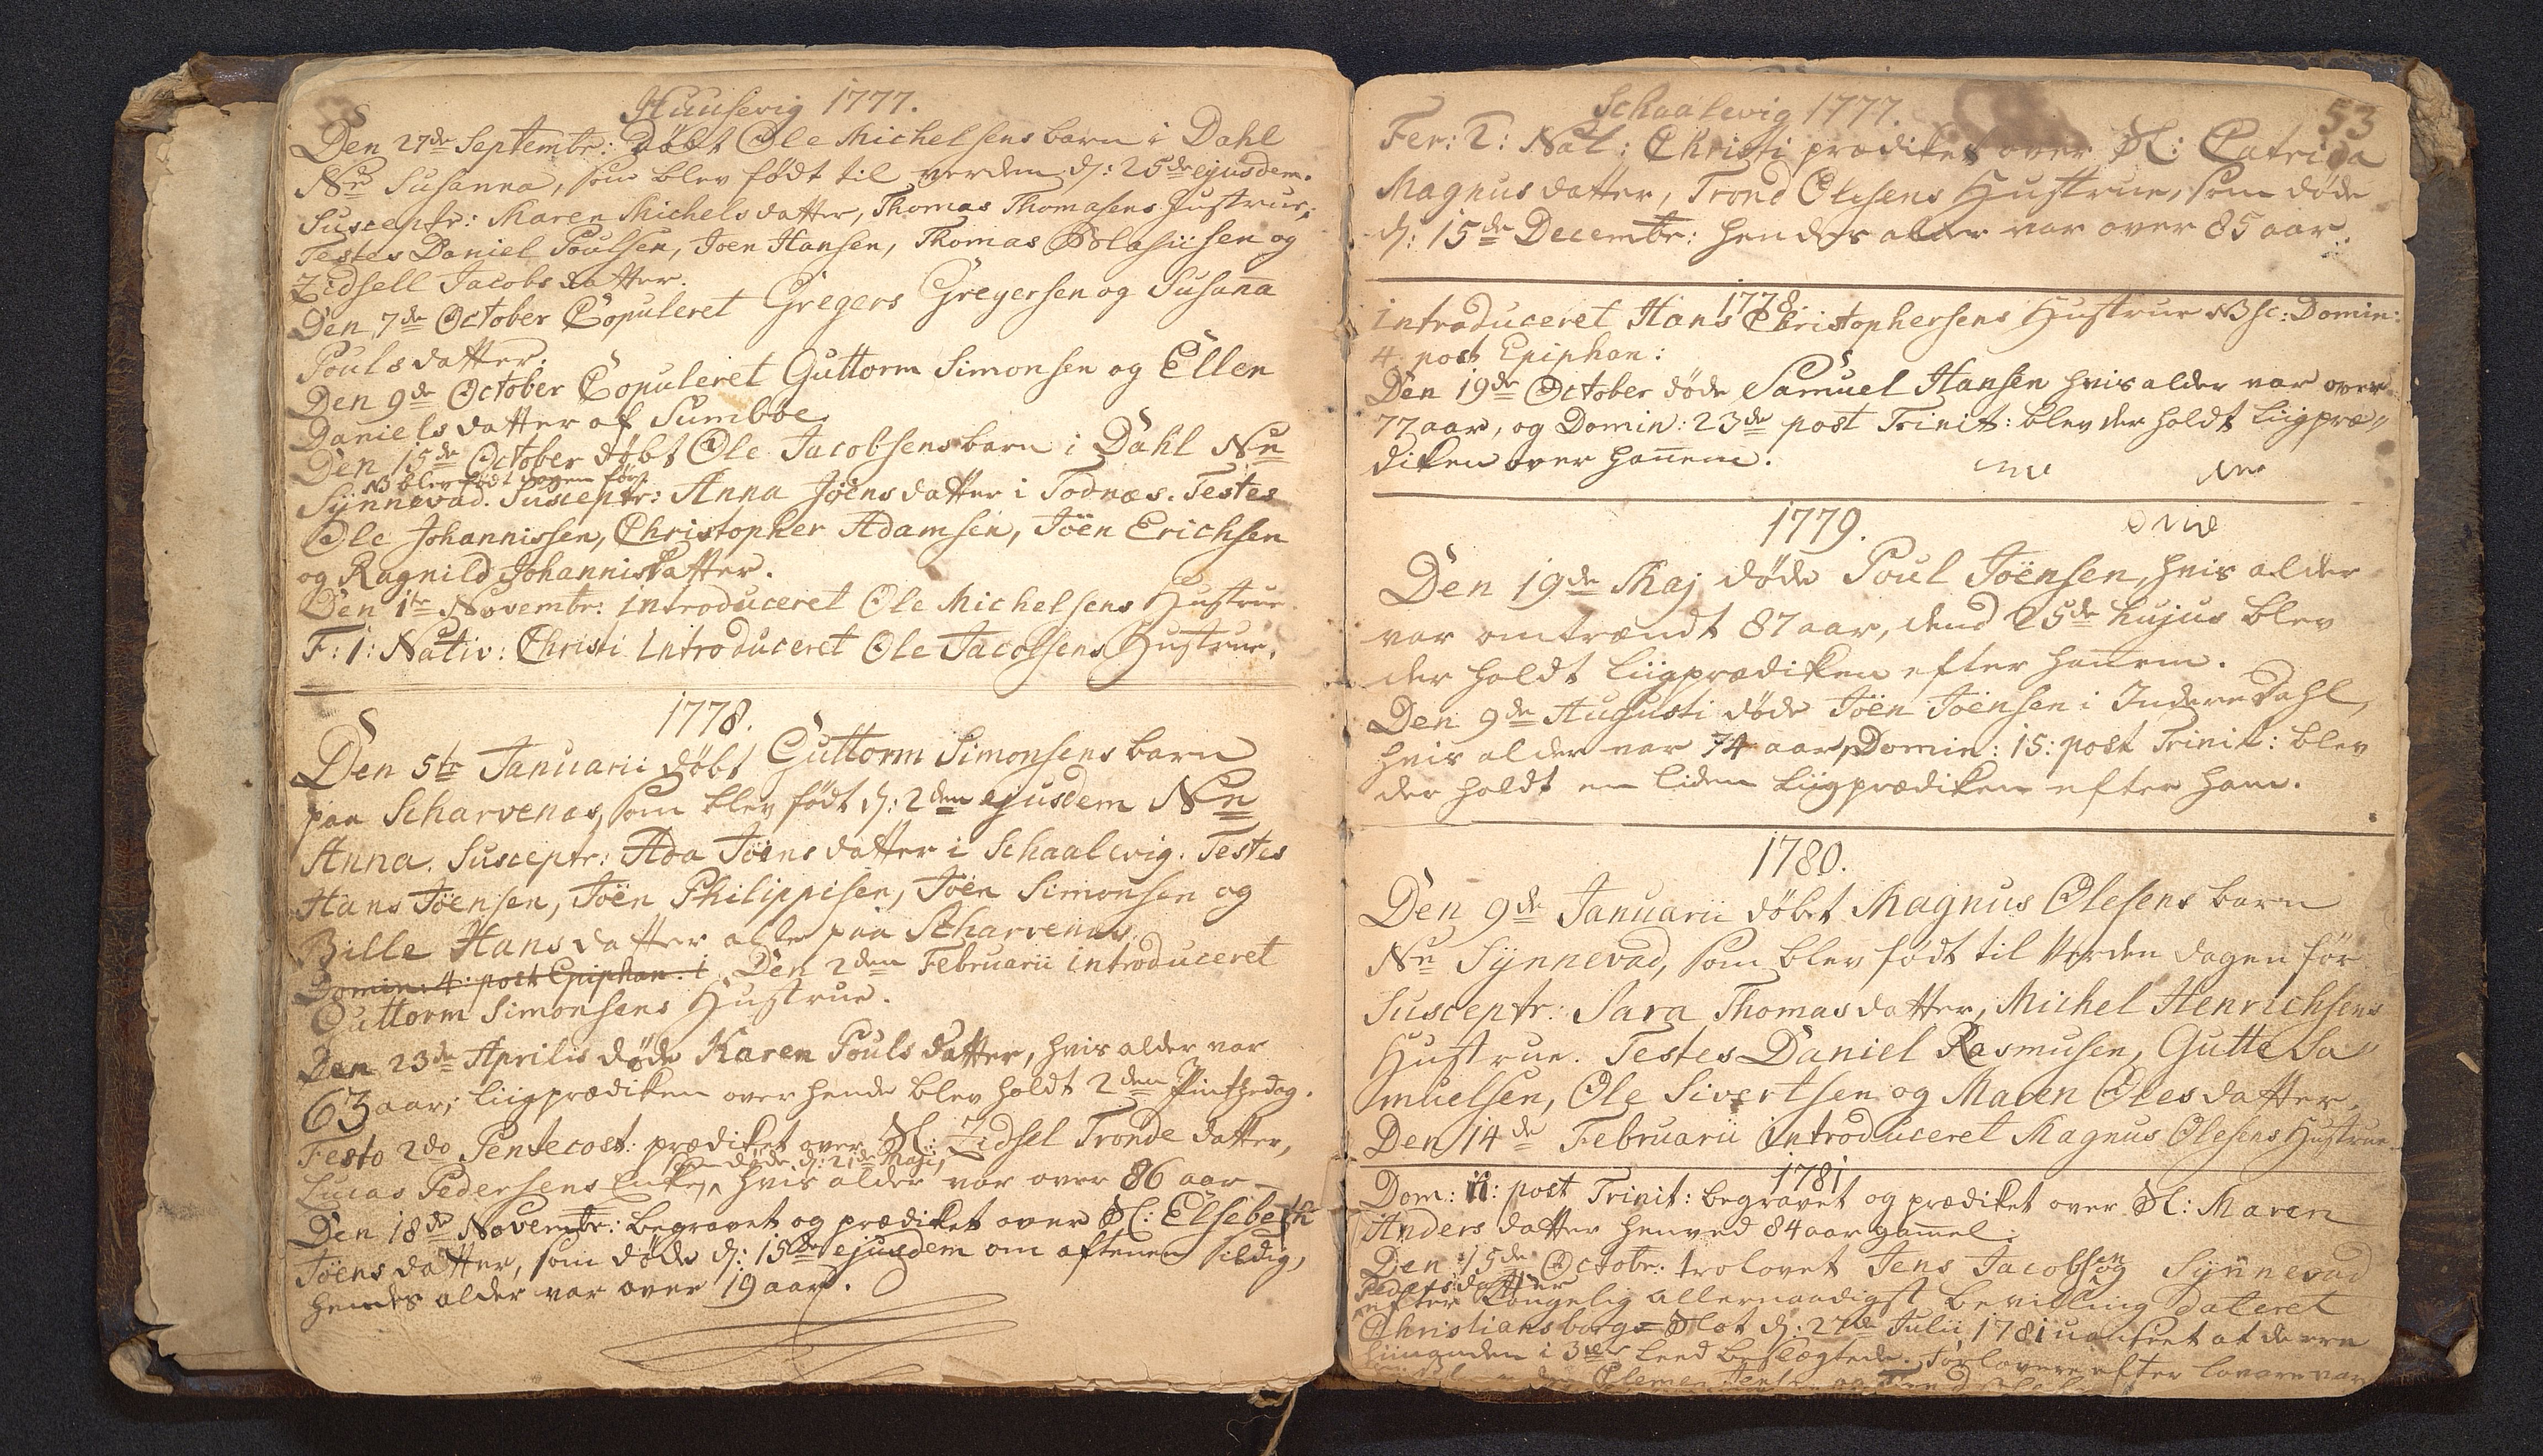 Huusevig 1777.
Den 27de Septembr: døbt Ole Michelsens barn i Dahl
Nn Susanna, som blev født til verden d: 25de ejusdem.
Susceptr: Maren Michelsdatter, Thomas Thomasens Hustrue,
Testes Daniel Poulsen, Joen Hansen, Thomas Blasiisen og
Zidsell Jacobsdatter.
Den 7de October Copuleret Gregers Gregersen og Susaña
Poulsdatter.
Den 9de October Copuleret Guttorm Simonsen og Ellen
Danielsdatter af Sumbøe
Den 15de October døbt Ole Jacobsens barn i Dahl Nn
NB blev født dagen før
Sÿnnevad. Susceptr: Anna Joensdatter i Todnæs. Testes
Ole Johannissen, Christopher Adamsen, Jöen Erichsen
og Ragnild Johannisdatter.
Den 1te Novembr: introduceret Ole Michelsens Hustrue
F: 1: Nativ: Christi Introduceret Ole Jacobsens Hustrue.
1778.
Den 5te Januarii døbt Guttorm Simonsens barn
paa Scharvenæs, som blev født d: 2den ejusdem Nn
Anna. Susceptr: Ada Jöensdatter i Schaalevig. Testes
Hans Jöensen, Jöen Philippisen, Jöen Simonsen og
Bille Hansdatter alle paa Scharvenæs.
Domin: 4: post Epiphan: i Den 2den Februarii introduceret
Guttorm Simonsens Hustrue.
Den 23de Aprilis døde Karen Poulsdatter, hvis alder var
63 aar; Liigprædiken over hende blev holdt 2den Pintzedag.
Festo 2do Pentecost: prædiket over Sl: Zidsel Trondedatter,
som døde d: 21de Maji,
Lucas Pedersens Enke, hvis alder var over 86 aar
Den 18de Novembr: begravet og prædiket over Sl: Elsebeth
Jöensdatter, som døde d: 15de ejusdem om aftenen sildig,
hendes alder var over 19 aar.
Schaalevig 1777.
53
Fer: 2: Nat: Christi prædiket over Sl: Catrina
Magnusdatter, Trond Olesens Hustrue, som døde
d: 15de Decembr: hendes alder var over 85 aar.
1778
Introduceret Hans Christophersens Hustrue NB sc: Domin:
4 post Epiphan:
Den 19de October døde Samuel Hansen hvis alder var over
77 aar, og Domin: 23de post Trinit: blev der holdt Liigpræ„
diken over hañem.
1779.
Den 19de Maj døde Poul Jöensen, hvis alder
var omtrændt 87 aar, dend 25de hujus blev
der holdt Liigprædiken efter hannem.
Den 9de Augusti døde Jöen Jöensen i Inderedahl,
hvis alder var 74 aar, Domin: 15: post Trinit: blev
der holdt en liden Liigprædiken efter ham.
1780.
Den 9de Januarii døbt Magnus Olesens barn
Nn Sÿnnevad, som blev født til Verden dagen før
Susceptr: Sara Thomasdatter, Michel Henrichsens
Hustrue. Testes Daniel Rasmusen, Gutte Sa„
muelsen, Ole Sivertsen og Maren Olesdatter.
Den 14de Februarii introduceret Magnus Olesens Hustrue
1781
Dom: 11: post Trinit: begravet og prædiket over Sl: Maren
Andersdatter henved 84 aar gam̃el.
Den 15de Octobr: trolovet Jens Jacobsen og Sÿñevad
Pedersdatter
efter Kongelig allernaadigst bevilling dateret
Christiansborg Slot d: 27de Julii 1781 uanseet at de ere
hinanden i 3die Leed beslægtede. Forlovere efter loven var
Clemen Jensen og